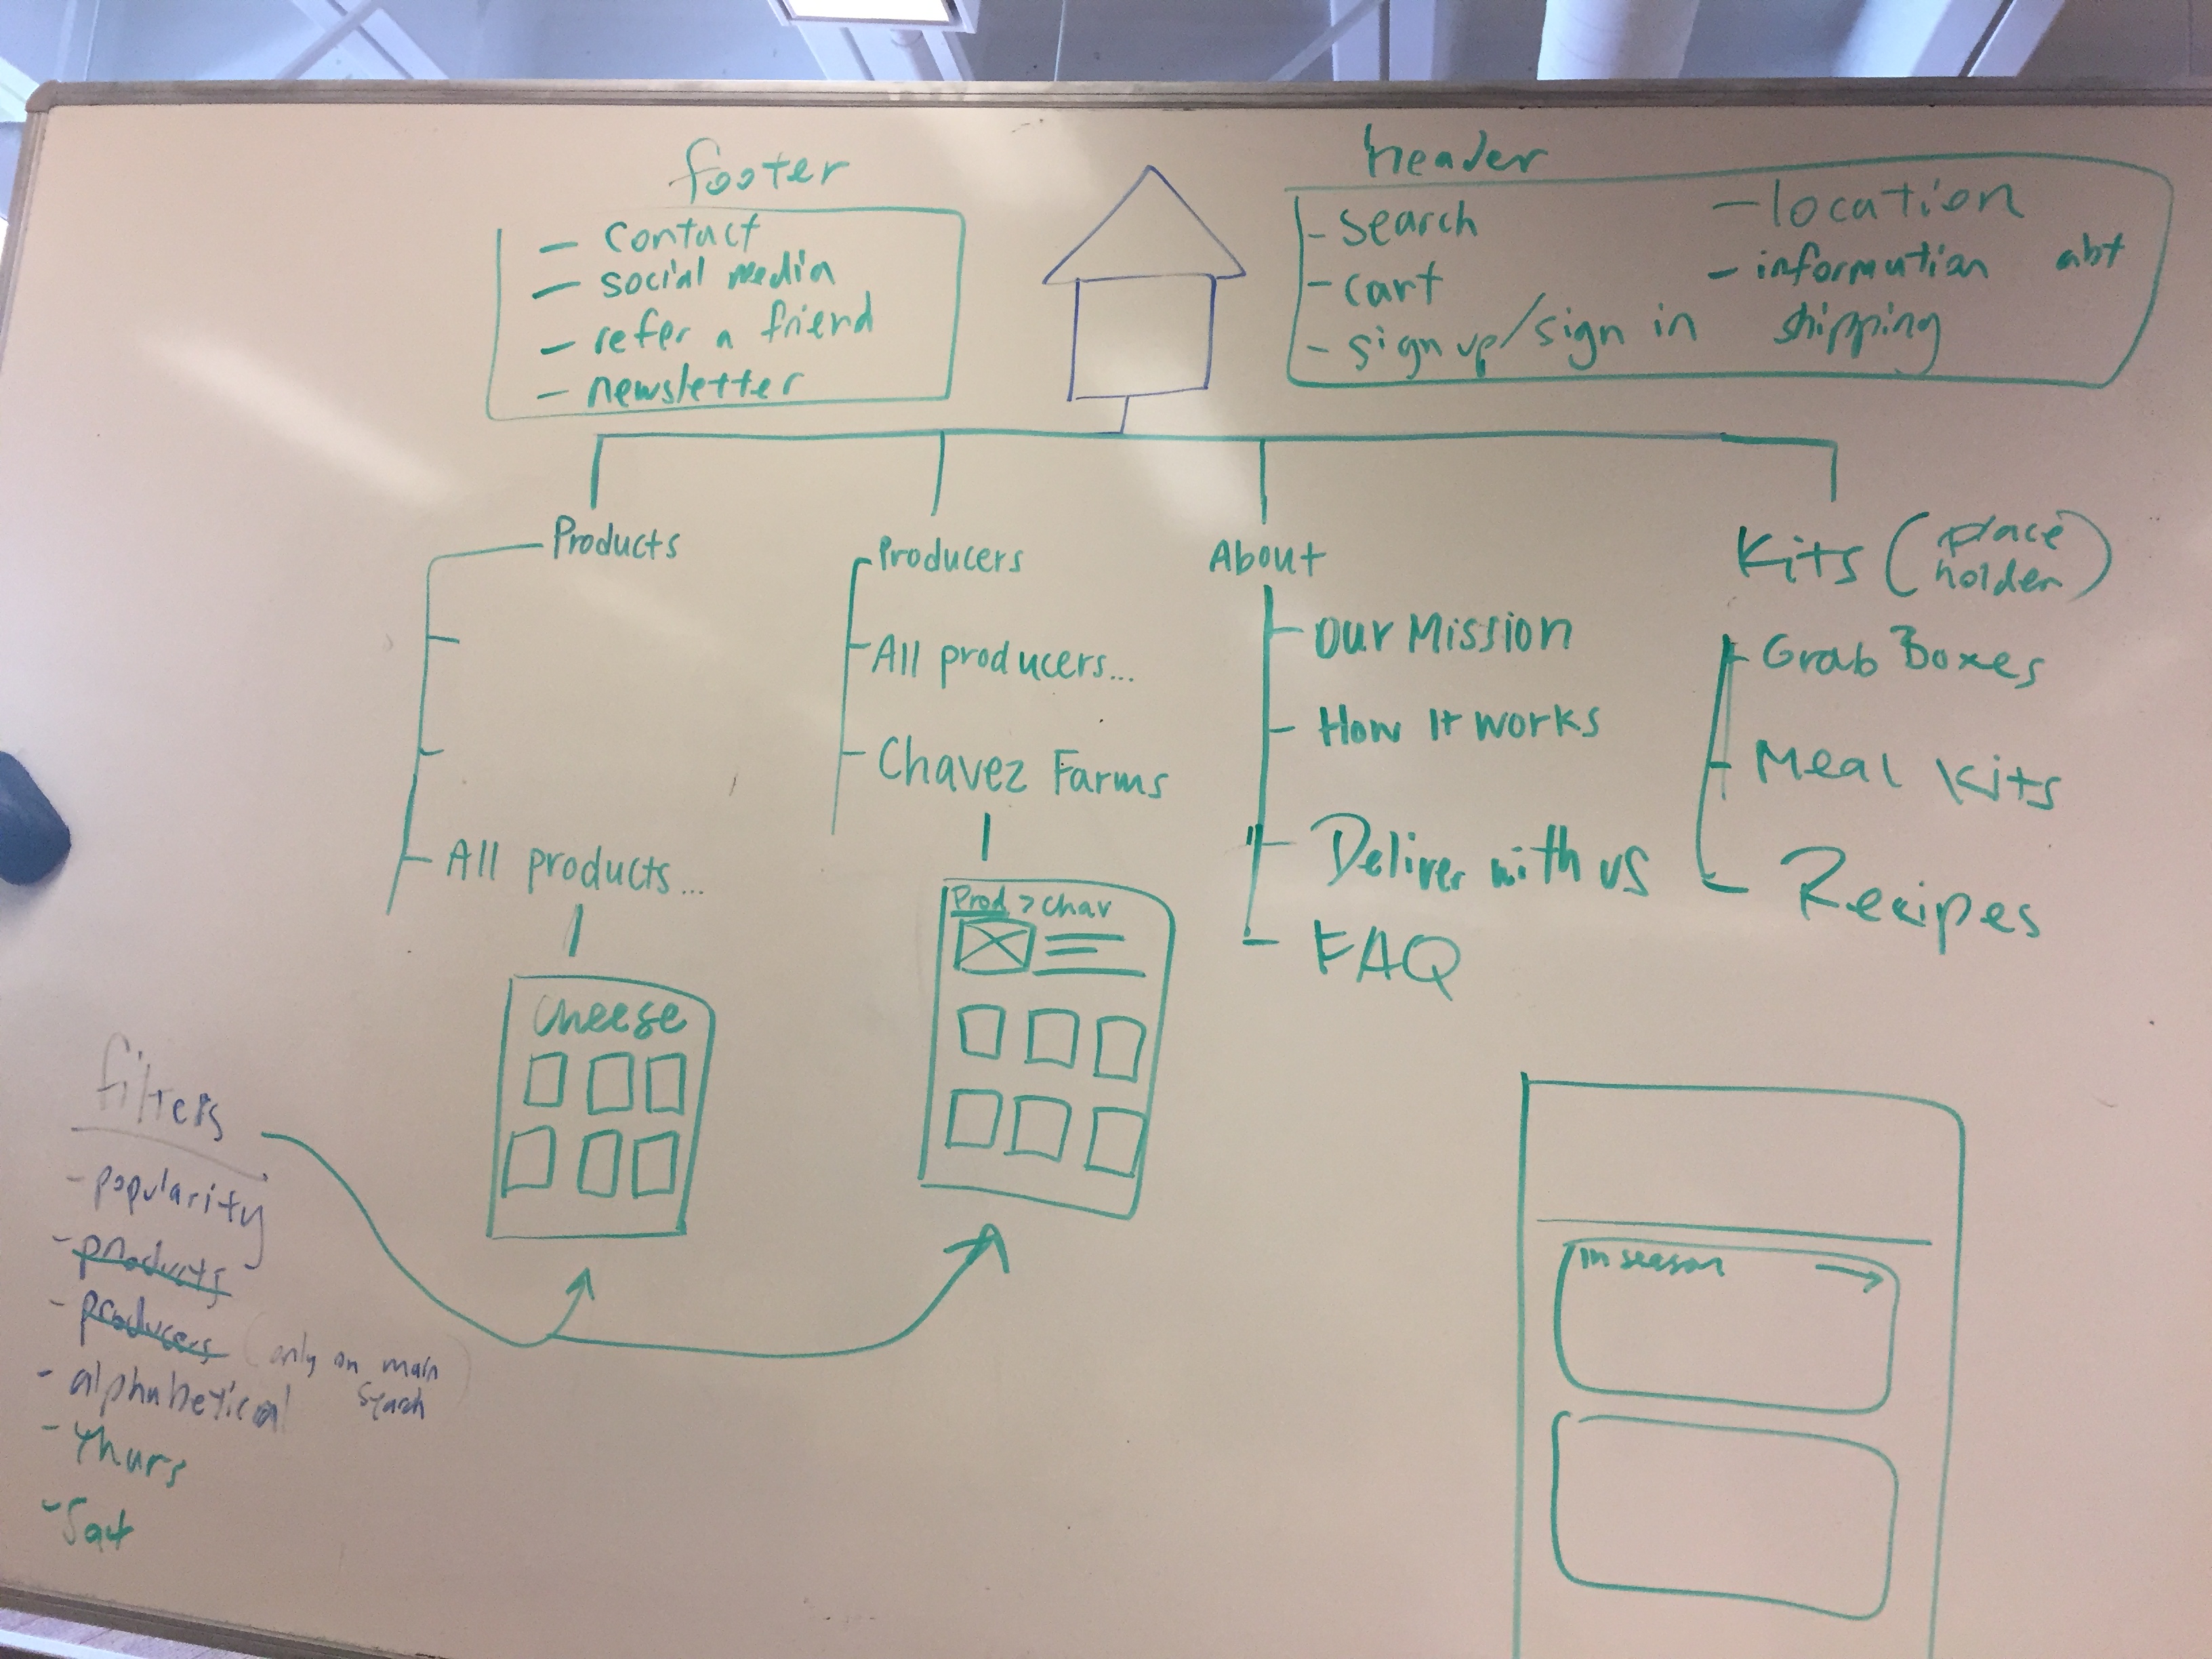 footer
- contact
- social media
- refer a friend
- newsletter
header
- search
- cart
- sign up/sign in
- location
- information abt
shipping
Products
All products...
Producers
All producers...
Chavez Farms
About
Our Mission
How It works
Deliver with us
FAQ
Kits (place
holder)
Grab Boxes
Meal Kits
Recipes
Cheese
Prod > Chav
filters
- popularity
- products
- producers (only on main
search)
- alphabetical
- Thurs
- Sat
in season →